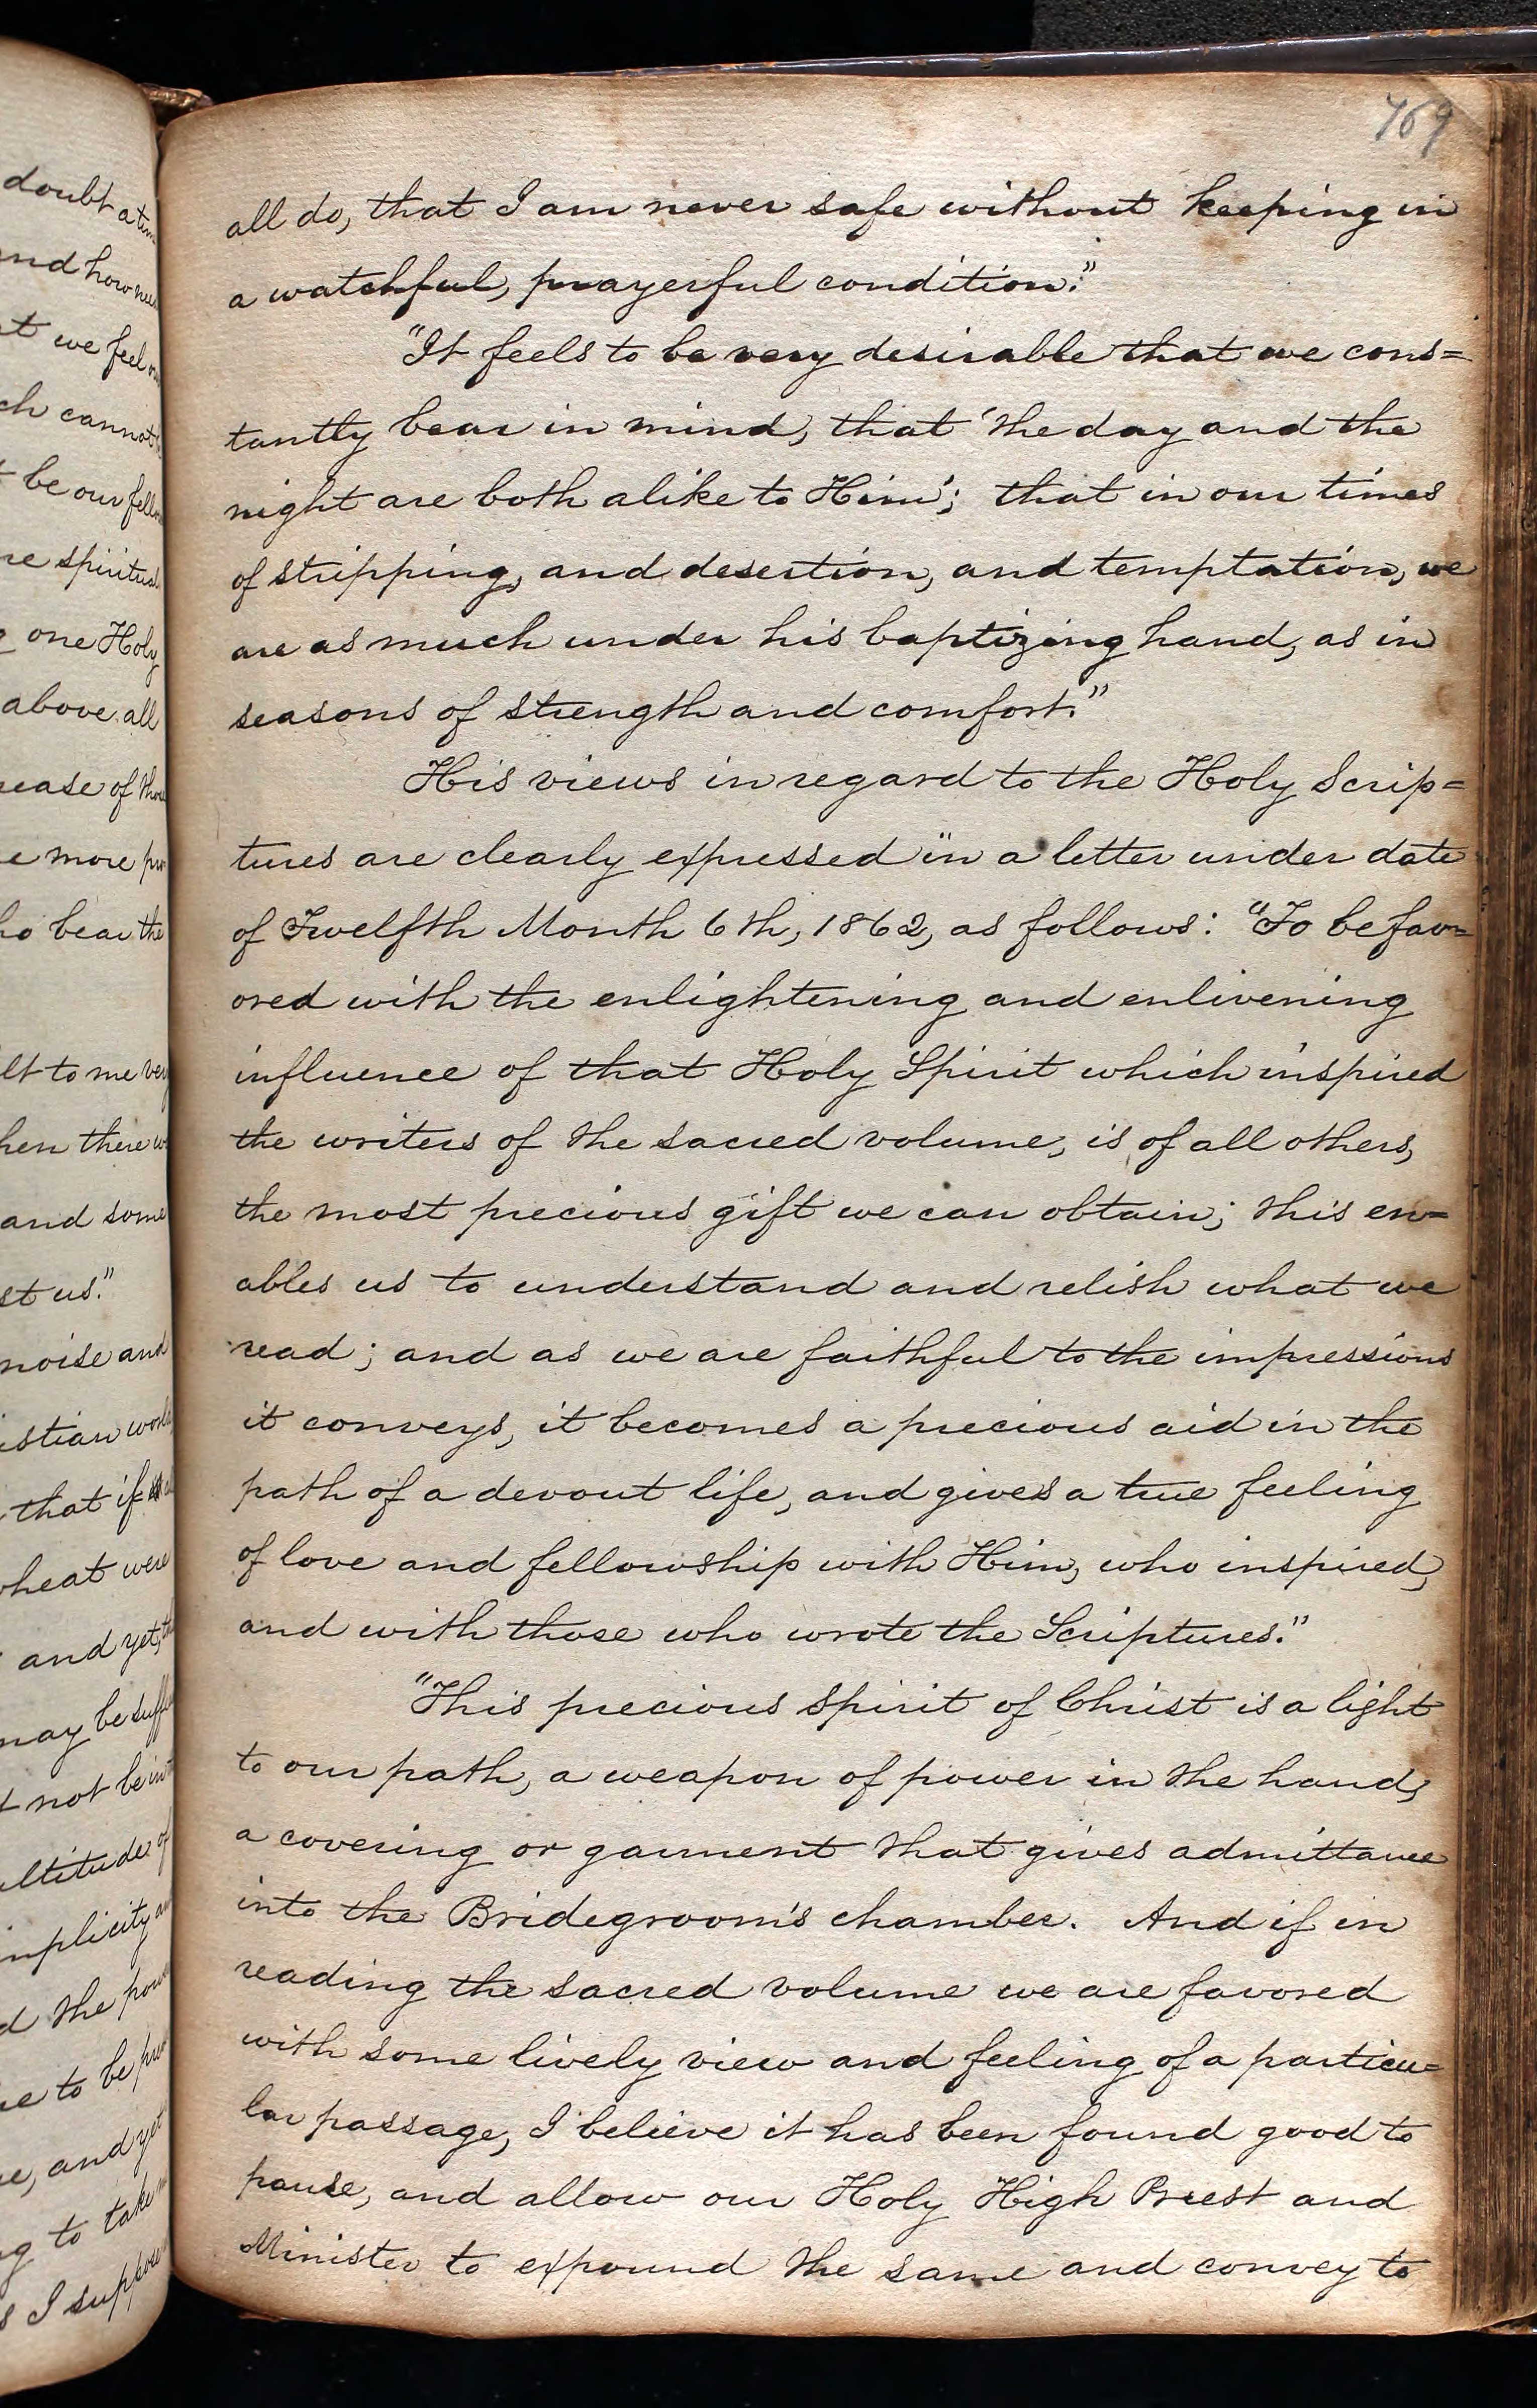 769
all do, that I am never safe without keeping in
a watchful, prayerful condition."
"It feels to be very desirable that we cons=
tantly bear in mind, that 'the day and the
night are both alike to Him'; that in our times
of stripping, and desertion, and temptation, we
are as much under his baptizing hand, as in
seasons of strength and comfort."
His views in regard to the Holy Scrip=
tures are clearly expressed in a letter under date
of Twelfth Month 6th, 1862, as follows: "To be fav=
ored with the enlightening and enlivening
influence of that Holy Spirit which inspired
the writers of the sacred volume, is, of all others,
the most precious gift we can obtain; this en=
ables us to understand and relish what we
read; and as we are faithful to the impressions
it conveys, it becomes a precious aid in the
path of a devout life, and gives a true feeling
of love and fellowship with Him, who inspired,
and with those who wrote the Scriptures."
"This precious Spirit of Christ is a light
to our path, a weapon of power in the hand,
a covering or garment that gives admittance
into the Bridegroom's chamber. And if in
reading the sacred volume we are favored
with some lively view and feeling of a particu=
lar passage, I believe it has been found good to
pause, and allow our Holy High Priest and
Minister to expound the same and convey to
doubt a
and how
we feel
cannot
be our
spiritual
one Holy
above all
of
more
bear the
to me very
there
and some
us."
noise and
that if
were
and yet,
may be
not be
of
the
to be
and yet
to take
I suppose